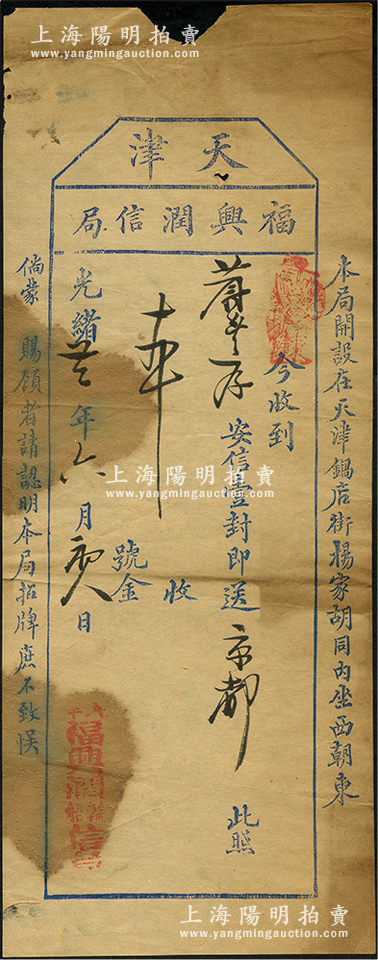 上海陽明拍賣
www.yangmingauction.com
天津
福興潤信局
本局開設在天津鍋店街楊家胡同內坐西朝東
今收到
安信壹封即送京都 此照
收
號金
光緒 年六月 日
倘蒙 賜顧者請認明本局招牌庶不致悞
福興潤 信局
上海陽明拍賣
www.yangmingauction.com
上海陽明拍賣
www.yangmingauction.com